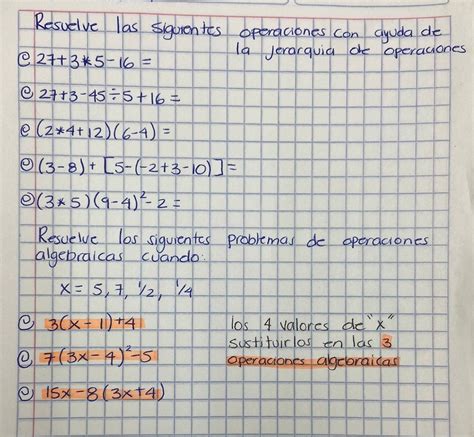 Resuelve las siguientes operaciones con ayuda de
la jerarquia de operaciones
@ 27+3*5-16=
@ 27+3-45÷5+16=
@ (2*4+12)(6-4)=
@ (3-8)+[5-(-2+3-10)]=
@ (3*5)(9-4)²-2=
Resuelve los siguientes problemas de operaciones
algebraicas cuando:
x = 5, 7, 1/2, 1/4
@ 3(x-1)+4
@ 7(3x-4)²-5
@ 15x-8(3x+4)
los 4 valores de "x"
sustituirlos en las 3
operaciones algebraicas